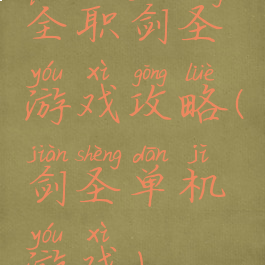 全职剑圣
yóu xì gōng lüè
游戏攻略(
jiàn shèng dān jī
剑圣单机
yóu xì
游戏)